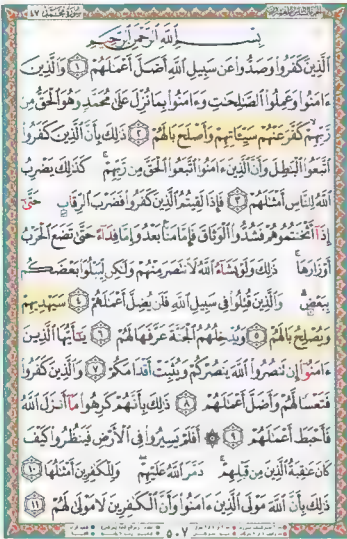 سورة محمد ٤٧
بِسْمِ اللَّهِ الرَّحْمَٰنِ الرَّحِيمِ
ٱلَّذِينَ كَفَرُوا۟ وَصَدُّوا۟ عَن سَبِيلِ ٱللَّهِ أَضَلَّ أَعْمَـٰلَهُمْ ١ وَٱلَّذِينَ
ءَامَنُوا۟ وَعَمِلُوا۟ ٱلصَّـٰلِحَـٰتِ وَءَامَنُوا۟ بِمَا نُزِّلَ عَلَىٰ مُحَمَّدٍ وَهُوَ ٱلْحَقُّ مِن
رَّبِّهِمْ ۙ كَفَّرَ عَنْهُمْ سَيِّـَٔاتِهِمْ وَأَصْلَحَ بَالَهُمْ ٢ ذَٰلِكَ بِأَنَّ ٱلَّذِينَ كَفَرُوا۟
ٱتَّبَعُوا۟ ٱلْبَـٰطِلَ وَأَنَّ ٱلَّذِينَ ءَامَنُوا۟ ٱتَّبَعُوا۟ ٱلْحَقَّ مِن رَّبِّهِمْ ۚ كَذَٰلِكَ يَضْرِبُ
ٱللَّهُ لِلنَّاسِ أَمْثَـٰلَهُمْ ٣ فَإِذَا لَقِيتُمُ ٱلَّذِينَ كَفَرُوا۟ فَضَرْبَ ٱلرِّقَابِ حَتَّىٰٓ
إِذَآ أَثْخَنتُمُوهُمْ فَشُدُّوا۟ ٱلْوَثَاقَ فَإِمَّا مَنًّۢا بَعْدُ وَإِمَّا فِدَآءً حَتَّىٰ تَضَعَ ٱلْحَرْبُ
أَوْزَارَهَا ۚ ذَٰلِكَ وَلَوْ يَشَآءُ ٱللَّهُ لَٱنتَصَرَ مِنْهُمْ وَلَـٰكِن لِّيَبْلُوَا۟ بَعْضَكُم
بِبَعْضٍ ۗ وَٱلَّذِينَ قُتِلُوا۟ فِى سَبِيلِ ٱللَّهِ فَلَن يُضِلَّ أَعْمَـٰلَهُمْ ٤ سَيَهْدِيهِمْ
وَيُصْلِحُ بَالَهُمْ ٥ وَيُدْخِلُهُمُ ٱلْجَنَّةَ عَرَّفَهَا لَهُمْ ٦ يَـٰٓأَيُّهَا ٱلَّذِينَ
ءَامَنُوٓا۟ إِن تَنصُرُوا۟ ٱللَّهَ يَنصُرْكُمْ وَيُثَبِّتْ أَقْدَامَكُمْ ٧ وَٱلَّذِينَ كَفَرُوا۟
فَتَعْسًا لَّهُمْ وَأَضَلَّ أَعْمَـٰلَهُمْ ٨ ذَٰلِكَ بِأَنَّهُمْ كَرِهُوا۟ مَآ أَنزَلَ ٱللَّهُ
فَأَحْبَطَ أَعْمَـٰلَهُمْ ٩ ۞ أَفَلَمْ يَسِيرُوا۟ فِى ٱلْأَرْضِ فَيَنظُرُوا۟ كَيْفَ
كَانَ عَـٰقِبَةُ ٱلَّذِينَ مِن قَبْلِهِمْ ۚ دَمَّرَ ٱللَّهُ عَلَيْهِمْ ۖ وَلِلْكَـٰفِرِينَ أَمْثَـٰلُهَا ١٠
ذَٰلِكَ بِأَنَّ ٱللَّهَ مَوْلَى ٱلَّذِينَ ءَامَنُوا۟ وَأَنَّ ٱلْكَـٰفِرِينَ لَا مَوْلَىٰ لَهُمْ ١١
٥٠٧